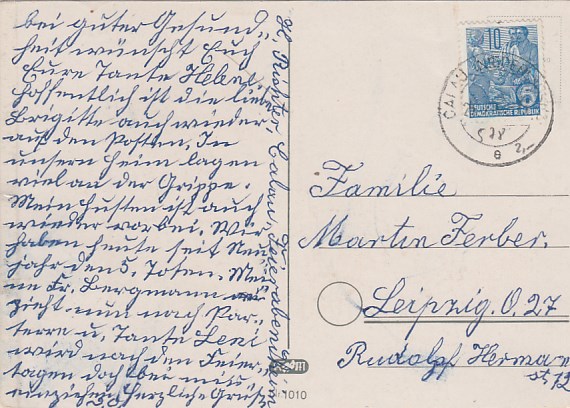 bei guter Gesund-
heit wünscht Euch
Eure Tante
Hoffentlich ist die liebe
Brigitte auch wieder
auf den Posten. In
unsern Heim lagen
viel an der Grippe.
Mein Husten ist auch
wieder vorbei. Wir
haben heute seit Neu
jahr den 5. Toten. Mei
ne Fr. Bergmann
zieht nun nach Par-
terre u. Tante Leni
wird nach den Feier-
tagen doch bei mir
einziehen. Herzliche Grüße
H. Richter, Calau, Feierabendheim
10
DEUTSCHE
DEMOKRATISCHE REPUBLIK
CALAU
a
Familie
Martin Ferber.
Leipzig. O. 27
Rudolf Herman
str. 12
1010